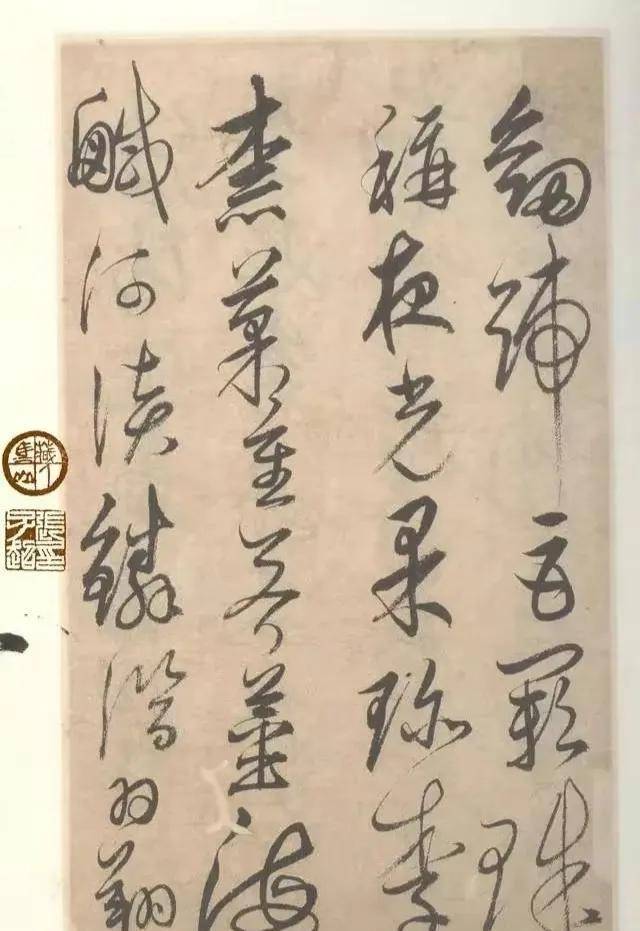 劍號巨闕珠
稱夜光果珍李
柰菜重芥薑海
鹹河淡鱗潛羽翔